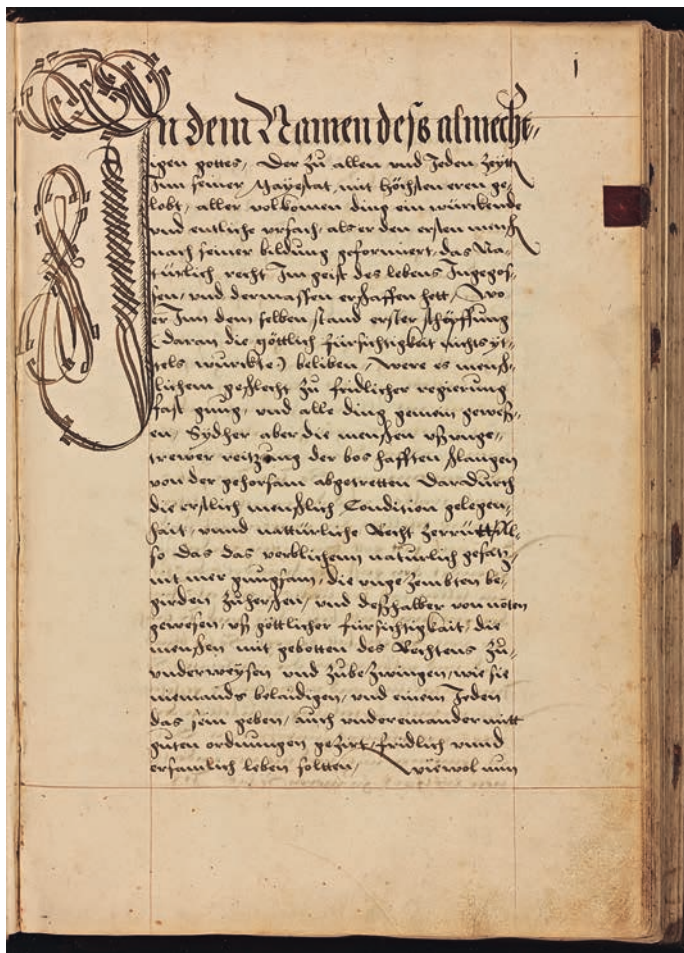 i
In dem Namen deß almecht„
igen gottes, Der zu allen vnd Jeden Zeytt
Jnn seiner Mayestat, mit höchsten eren ge„
lobt, aller volkomen ding ein würckende
vnd entliche vrsach, als er den ersten mensch
nach seiner bildung geformiert, das Na„
türlich recht Jm geist des lebens Jngegos„
sen, vnd dermassen erschaffen hett, Wo
er Jnn dem selben stand erster schöpffung
(daran die göttlich fürsichtigkait nichts yt„
tels würckte) beliben, Were es mensch„
lichem geschlecht zu fridlicher regierung
fast gnug, vnd alle ding gemein gewesß„
en, Sydher aber die menschen vß vnge„
trewer reitzung der boshafften schlangen
von der gehorsam abgetretten Dardurch
die erstlich menschlich Condition gelegen„
hait, vnnd nattürliche Recht zerrüttt, Al„
so das das verblichenn natürlich gesatz,
nit mer gnugsam, die vngezembten be„
girden zuherschen, vnd deßhalber von nöten
gewesen, vß göttlicher fürsichtigkait, die
menschen mit gebotten des Rechtens zu„
vnderweysen vnd zubezwingen, wie sie
niemands belaidigen, vnd einem Jeden
das sein geben, auch vndereinander mitt
guten ordnungen gezirt, fridlich vnnd
ersamlich leben soltten, Wiewol nun